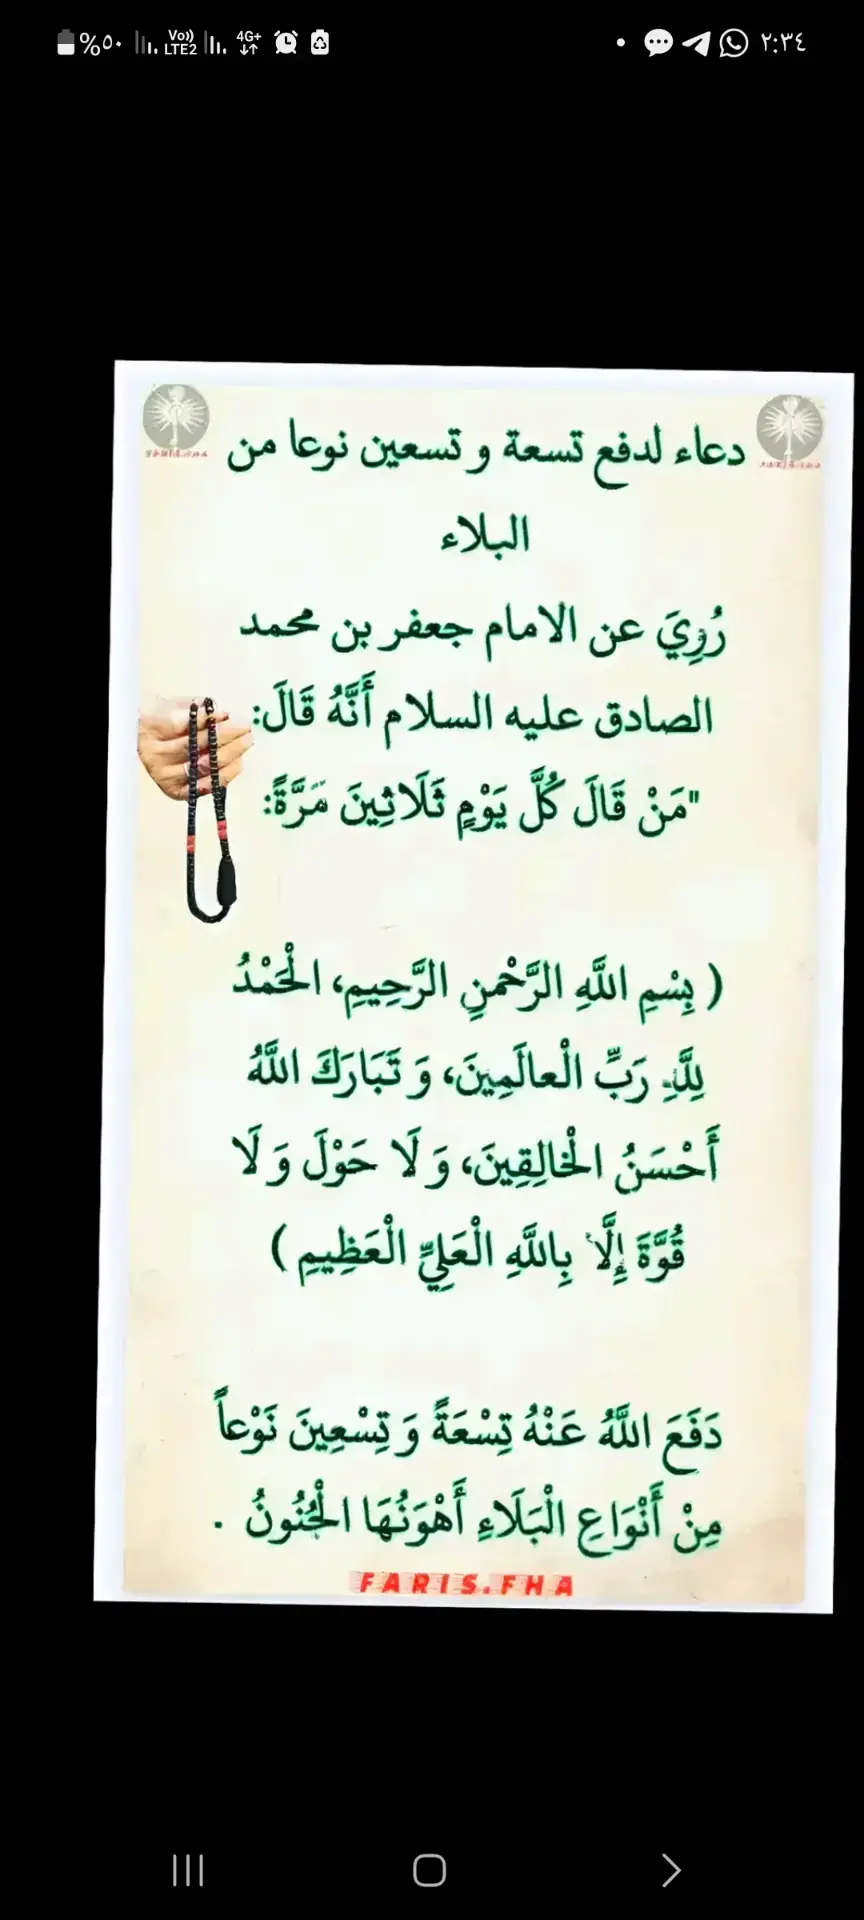 %٥٠ Vo)) LTE2 4G+ ٢:٣٤
دعاء لدفع تسعة و تسعين نوعا من
البلاء
رُوِيَ عن الامام جعفر بن محمد
الصادق عليه السلام أَنَّهُ قَالَ:
"مَنْ قَالَ كُلَّ يَوْمٍ ثَلَاثِينَ مَرَّةً:
( بِسْمِ اللَّهِ الرَّحْمنِ الرَّحِيمِ، الْحَمْدُ
لِلَّهِ رَبِّ الْعالَمِينَ، وَ تَبَارَكَ اللَّهُ
أَحْسَنُ الْخالِقِينَ، وَ لَا حَوْلَ وَ لَا
قُوَّةَ إِلَّا بِاللَّهِ الْعَلِيِّ الْعَظِيمِ )
دَفَعَ اللَّهُ عَنْهُ تِسْعَةً وَ تِسْعِينَ نَوْعاً
مِنْ أَنْوَاعِ الْبَلَاءِ أَهْوَنُهَا الْجُنُونُ .
FARIS.FHA